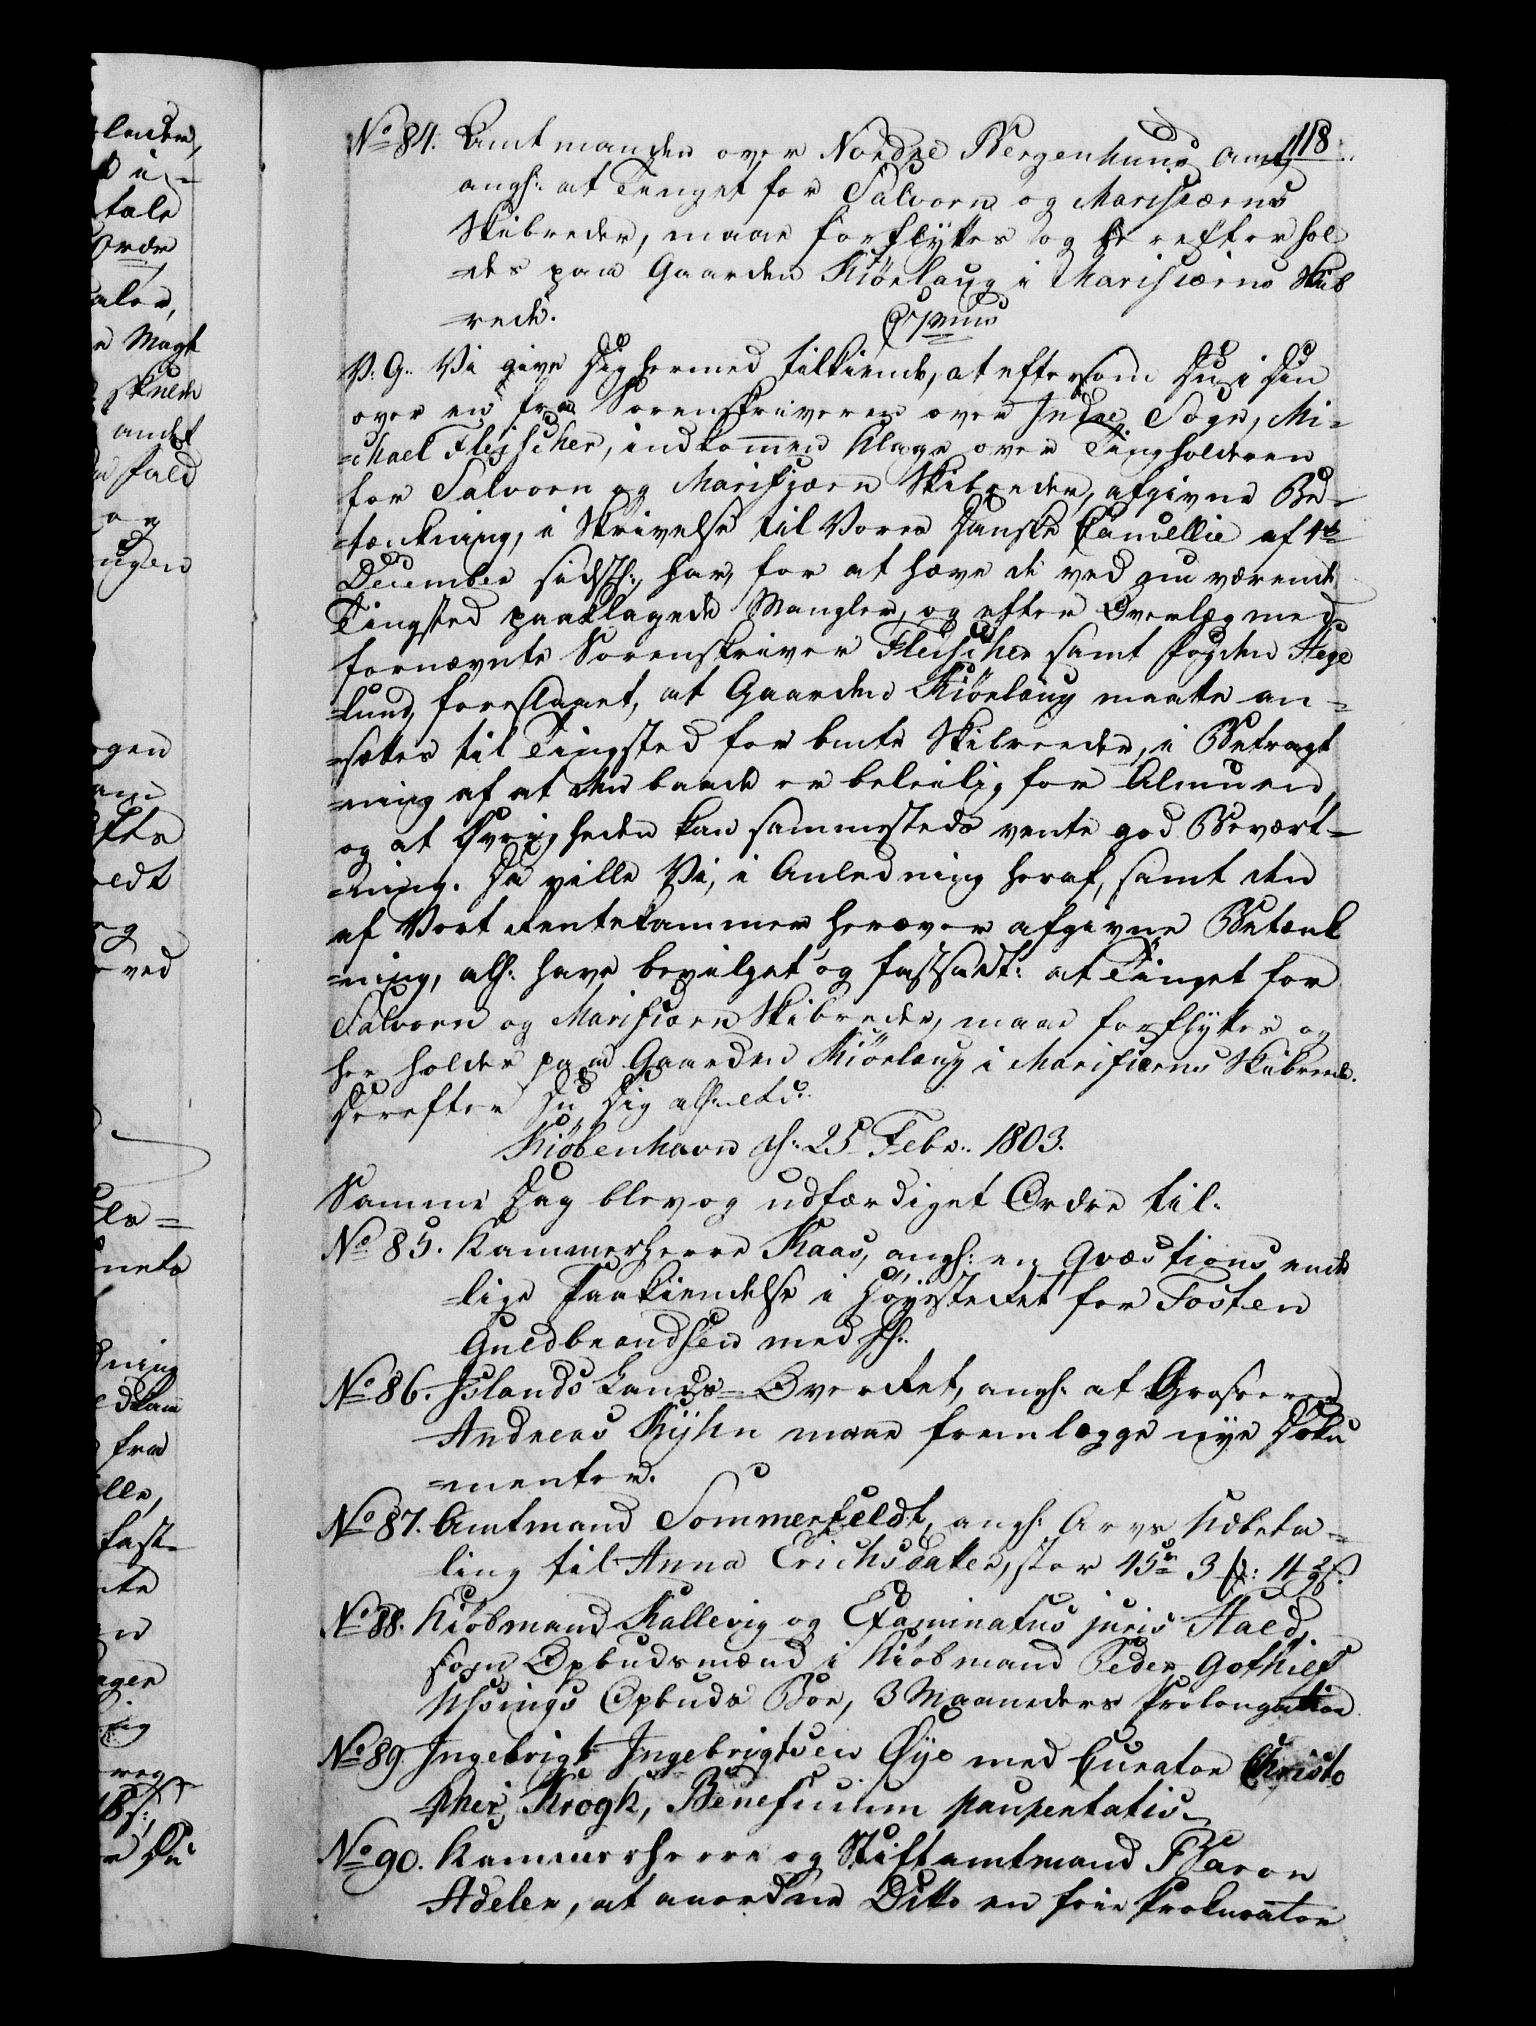 118.
No 84. Amtmanden over Nordre Bergenhuus Amt,
angh: at Tinget for Salvorn og Marifiærns
Skibreder, maae forflyttes og herefter hol
=des paa Gaarden Kiørlaug i Marifiærns Skib
=rede.
V: G: Vi give Dig hermed tilkiende, at eftersom Du i Din
over en fra Sorenskriveren over Indre Sogn, Mi=
=chael Fleischer, indkommen Klage over Tingholderen
for Salvorn og Marifjærn Skibreder, afgivne Be=
=tænkning, i Skrivelse til Vores Danske Cancellie af 4de
December sidsth:, har, for at hæve de ved nu værende
Tingsted paaklagede Mangler, og efter Overlæg med
fornævnte Sorenskriver Fleischer samt Fogden Hege
=lund, foreslaaet, at Gaarden Kiørlaug maatte an=
=sættes til Tingsted for bmte Skibreeder, i Betragt
=ning af at den baade er beleilig for Almuen,
og at Øvrigheden kan sammesteds vente god Bevært=
=ning. Da ville Vi, i Anledning heraf, samt den
af Vort Rentekammer herover afgivne Betænk
=ning, alh: have bevilget og fastsadt: at Tinget for
Salvorn og Marifiærn Skibreder, maae forflyttes og
her holdes paa Gaarden Kiørlaug i Marifiærns Skibrede.
Derefter Du Dig alh: etc:
Kiöbenhavn d: 25 Febr: 1803.
Samme Dag blev og udfærdiget Ordre til:
No 85. Kammerherre Kaas, angh: en Qvæstions ende
=lige Paakiendelse i Höiesteret for Tosten
Guldbrandsen med fl:
No 86. Islands Lands=Overret, angh: at Grosserer
Andreas Kyhn maae fremlægge nye Doku
=menter.
No 87. Amtmand Sommerfeldt, angh: Arvs Udbeta=
ling til Anna Erichsdatter, stor 45 rd 3 
No 88. Kiöbmand Kallevig og Examinatus juris Hald,
som Opbudsmænd i Kiöbmand Peder Gothilf
Ussings Opbuds Boe, 3 Maaneders Prolongation
No 89. Ingebrigt Ingebrigtsen Øye med Curator Christo
pher Krogh, Beneficium paupertatis.
No 90. Kammerherre og Stiftamtmand Baron
Adeler, at anordne Ditto en frie Prokurator